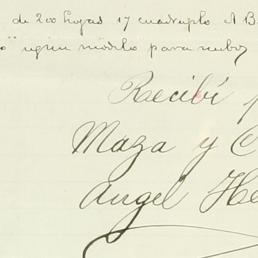 de 200 hojas 17 cuadruplo A B
o" segun modelo para nubo
Recibí p
Maza y C
Angel He